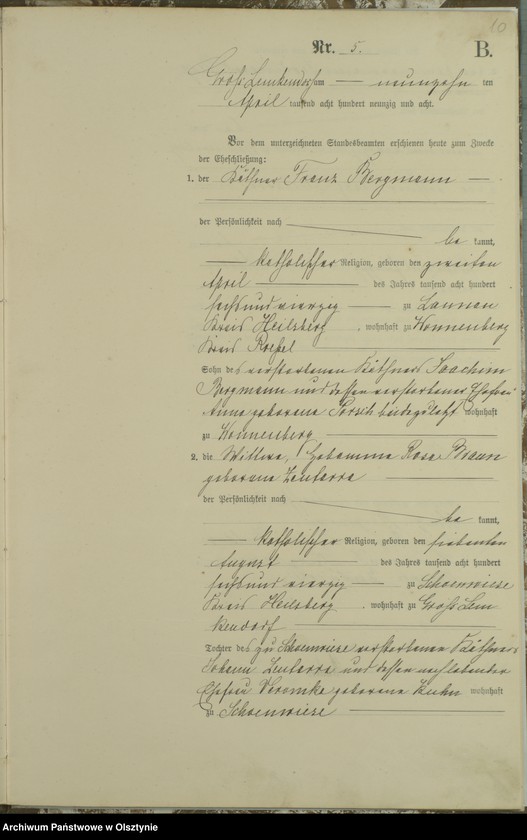 10
Nr. 5. B.
Groß Lemkendorf am — neunzehn ten
April tausend acht hundert neunzig und acht.
Vor dem unterzeichneten Standesbeamten erschienen heute zum Zwecke
der Eheschließung:
1. der Käthner Franz Bergmann —
der Persönlichkeit nach
be kannt,
— katholischer Religion, geboren den zweiten
April — des Jahres tausend acht hundert
sechs und vierzig — zu Launau
Kreis Heilsberg, wohnhaft zu Wonnenberg
Kreis Roeßel
Sohn des verstorbenen Käthners Joachim
Bergmann und dessen verstorbener Ehefrau
Anna geborene Porsch beide zuletzt wohnhaft
zu Wonnenberg —
2. die Wittwe, Hebamme Rosa Braun
geborene —
der Persönlichkeit nach
be kannt,
— katholischer Religion, geboren den siebenten
August — des Jahres tausend acht hundert
sechs und vierzig — zu Schoenwiese
Kreis Heilsberg, wohnhaft zu Groß Lem
kendorf —
Tochter des zu Schoenwiese verstorbenen Käthners
Johann und dessen nachlebender
Ehefrau Veronika geborene Kuhn wohnhaft
zu Schoenwiese —
Archiwum Państwowe w Olsztynie